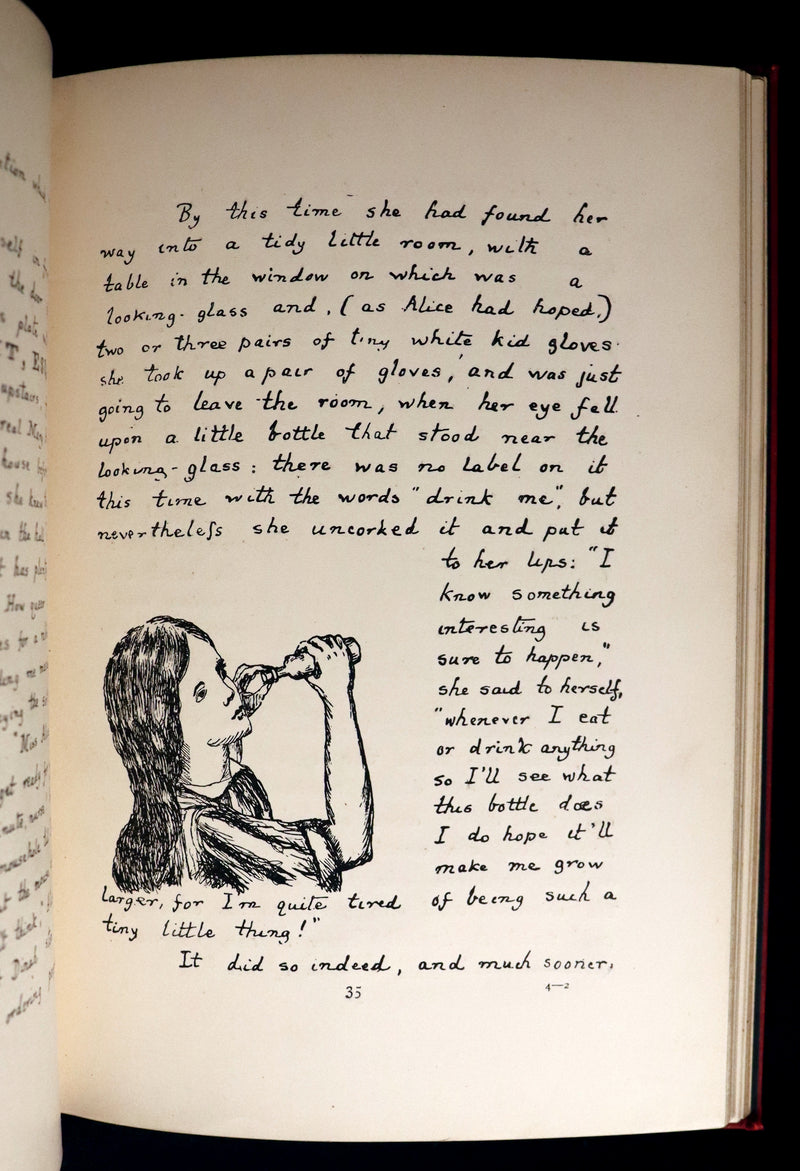 By this time she had found her
way into a tidy little room, with a
table in the window on which was a
looking-glass and, (as Alice had hoped,)
two or three pairs of tiny white kid gloves.
she took up a pair of gloves, and was just
going to leave the room, when her eye fell
upon a little bottle that stood near the
looking-glass: there was no label on it
this time with the words "drink me", but
nevertheleſs she uncorked it and put it
to her lips: "I
know something
interesting is
sure to happen,"
she said to herself,
"whenever I eat
or drink anything
so I'll see what
this bottle does
I do hope it'll
make me grow
larger, for I'm quite tired of being such a
tiny little thing!"
It did so indeed, and much sooner,
35 4—2